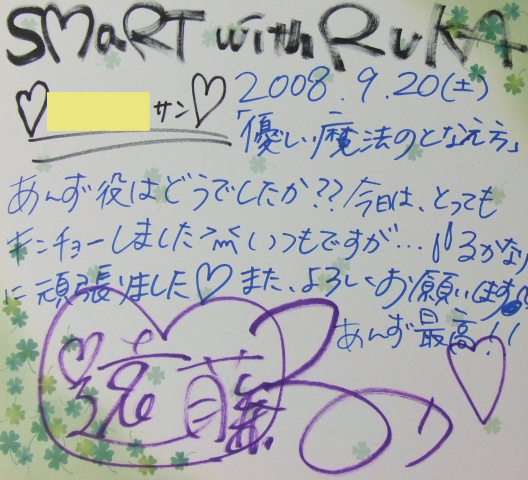 SMaRT with RuKA
♡ サン♡
2008.9.20(土)
「優しい魔法のとなえ方」
あんず役はどうでしたか??今日は、とっても
キンチョーしました><いつもですが…ルるかなり
に頑張りました♡また、よろしくお願いします
あんず最高!!
遠藤